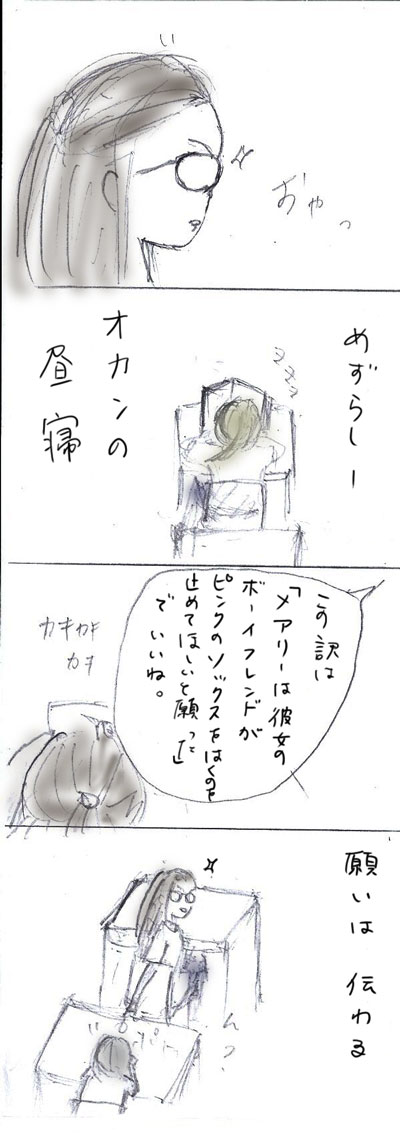 おやっ
めずらしー
オカンの
昼寝
zzz
この訳は
「メアリーは彼女の
ボーイフレンドが
ピンクのソックスをはくのを
止めてほしいと願った」
でいいね。
カキカキ
カキ
願いは 伝わる
ん?